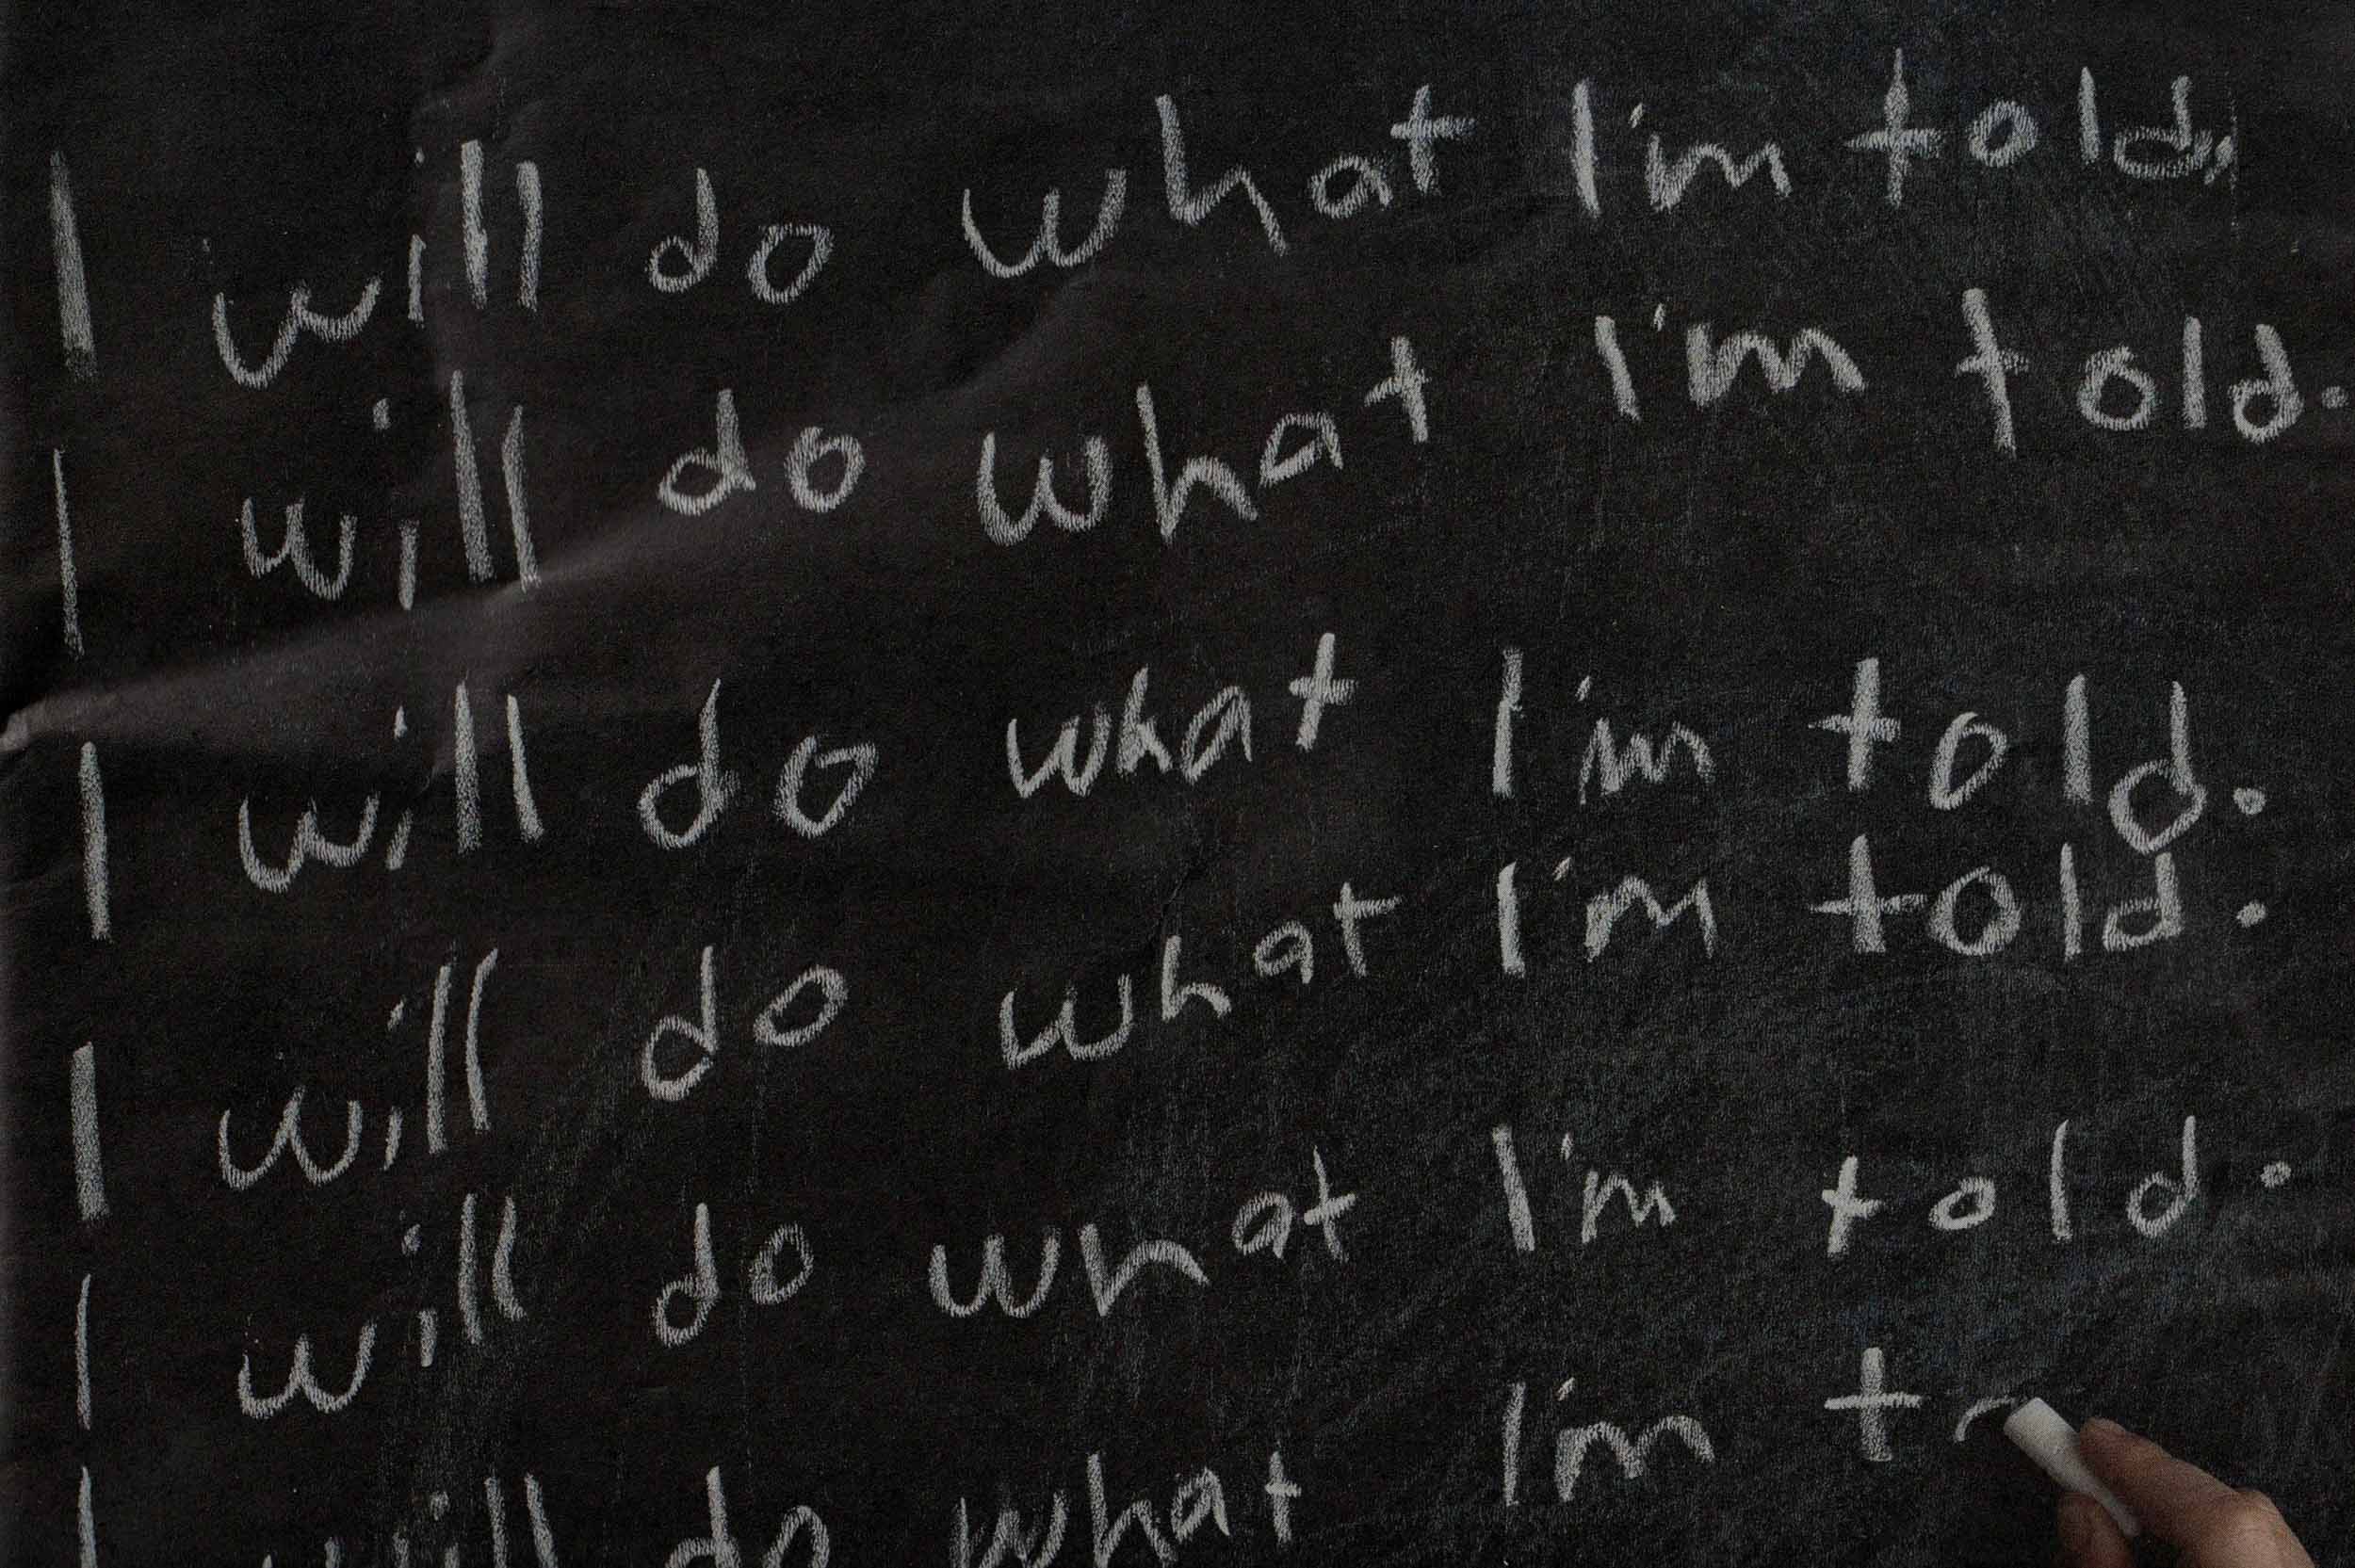 I will do what I'm told.
I will do what I'm told.
I will do what I'm told.
I will do what I'm told.
I will do what I'm told.
I will do what I'm t